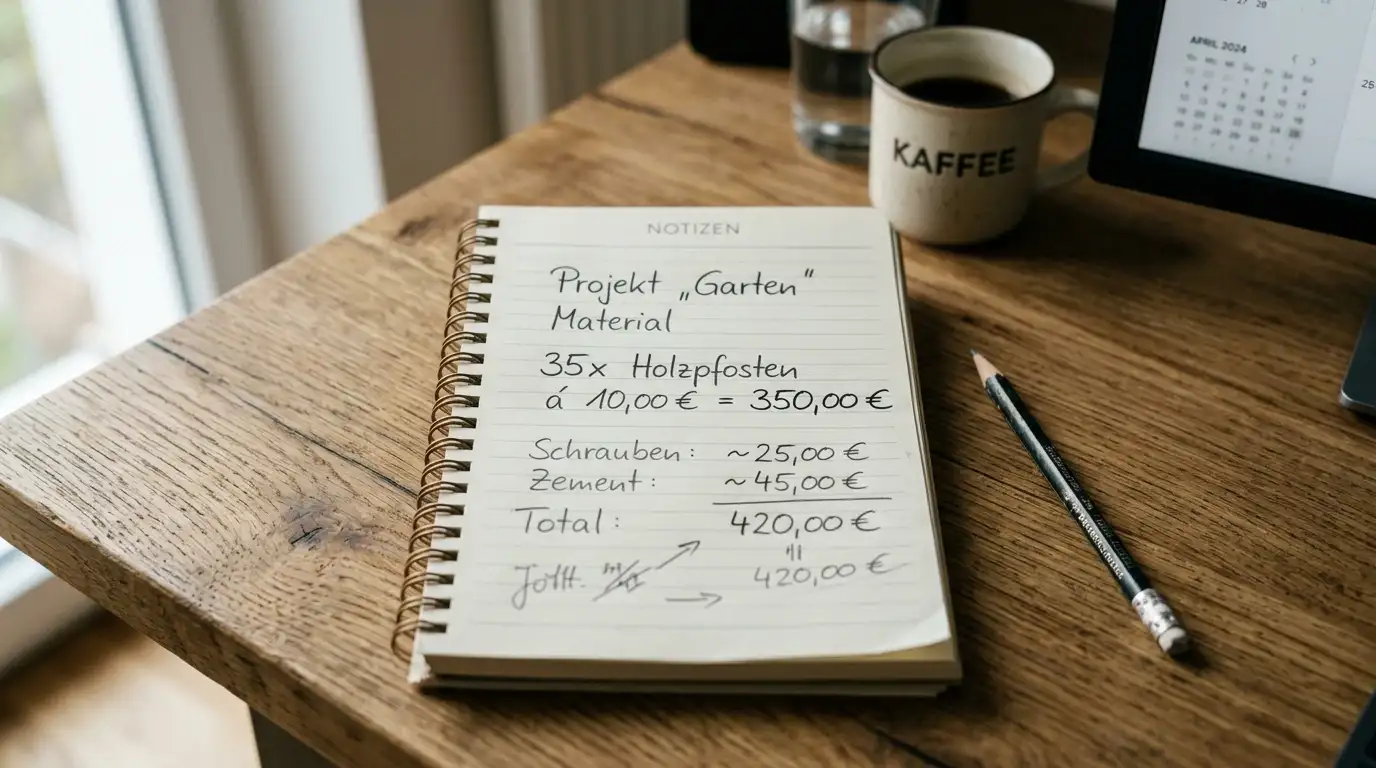 NOTIZEN
Projekt „Garten“
Material
35x Holzpfosten
á 10,00 € = 350,00 €
Schrauben: ~25,00 €
Zement: ~45,00 €
Total: 420,00 €
420,00 €
KAFFEE
APRIL 2024